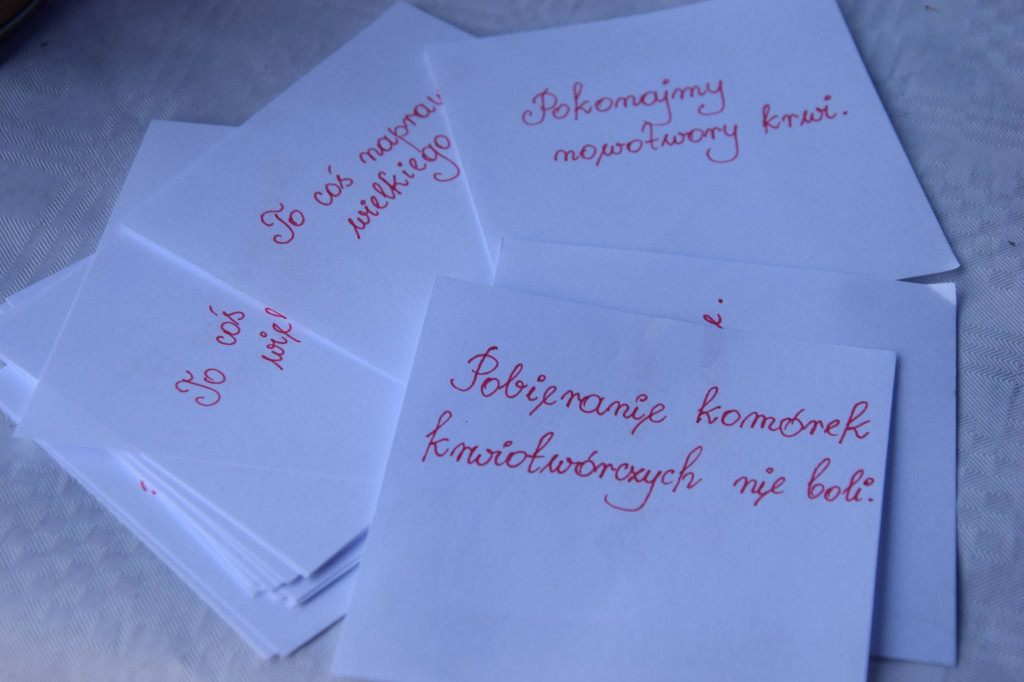 Pokonajmy
nowotwory krwi.
To coś napraw
wielkiego
To coś
Pobieranie komórek
krwiotwórczych nie boli.